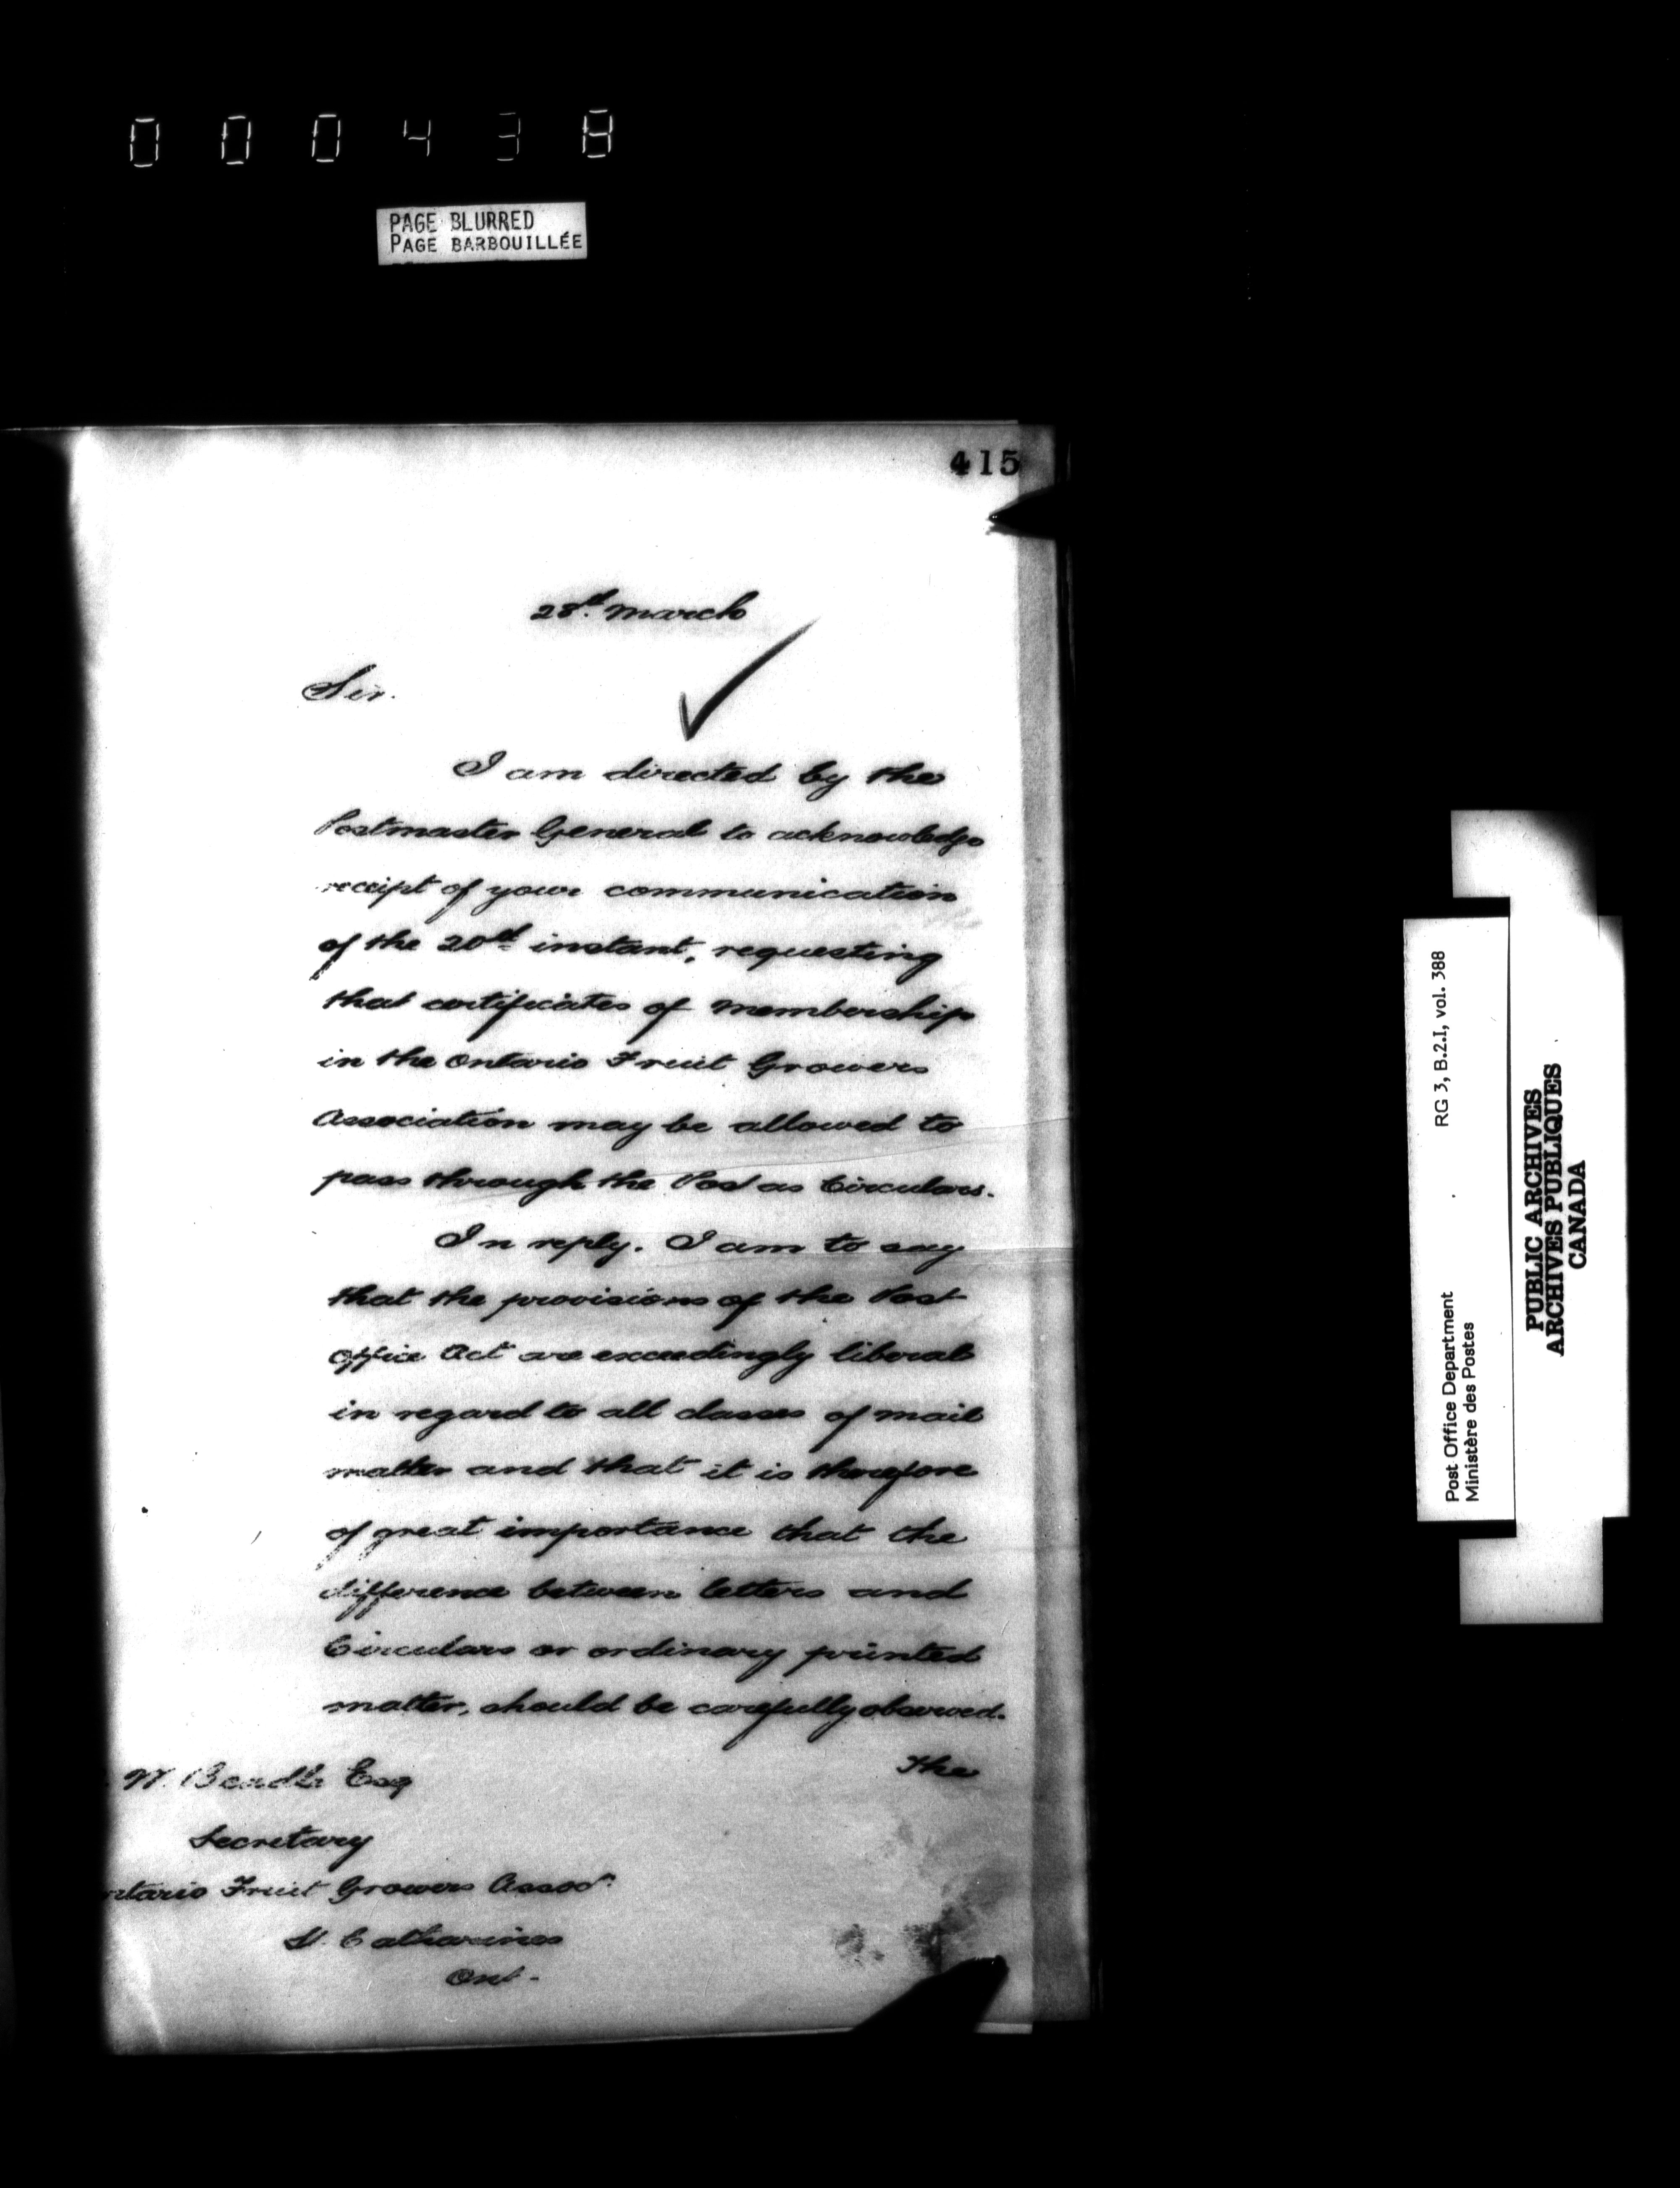 000438
PAGE BLURRED
PAGE BARBOUILLÉE
415
28th March
Sir.
I am directed by the
Postmaster General to acknowledge
receipt of your communication
of the 20th instant, requesting
that certificates of membership
in the Ontario Fruit Growers
Association may be allowed to
pass through the Post as Circulars.
In reply. I am to say
that the provisions of the Post
Office Act are exceedingly liberal
in regard to all classes of mail
matter and that it is therefore
of great importance that the
difference between letters and
Circulars or ordinary printed
matter, should be carefully observed.
The
W. Beadle Esq
Secretary
ntario Fruit Growers Assocn.
St. Catharines
Ont-
RG 3, B.2.I, vol. 388
Post Office Department
Ministère des Postes
PUBLIC ARCHIVES
ARCHIVES PUBLIQUES
CANADA